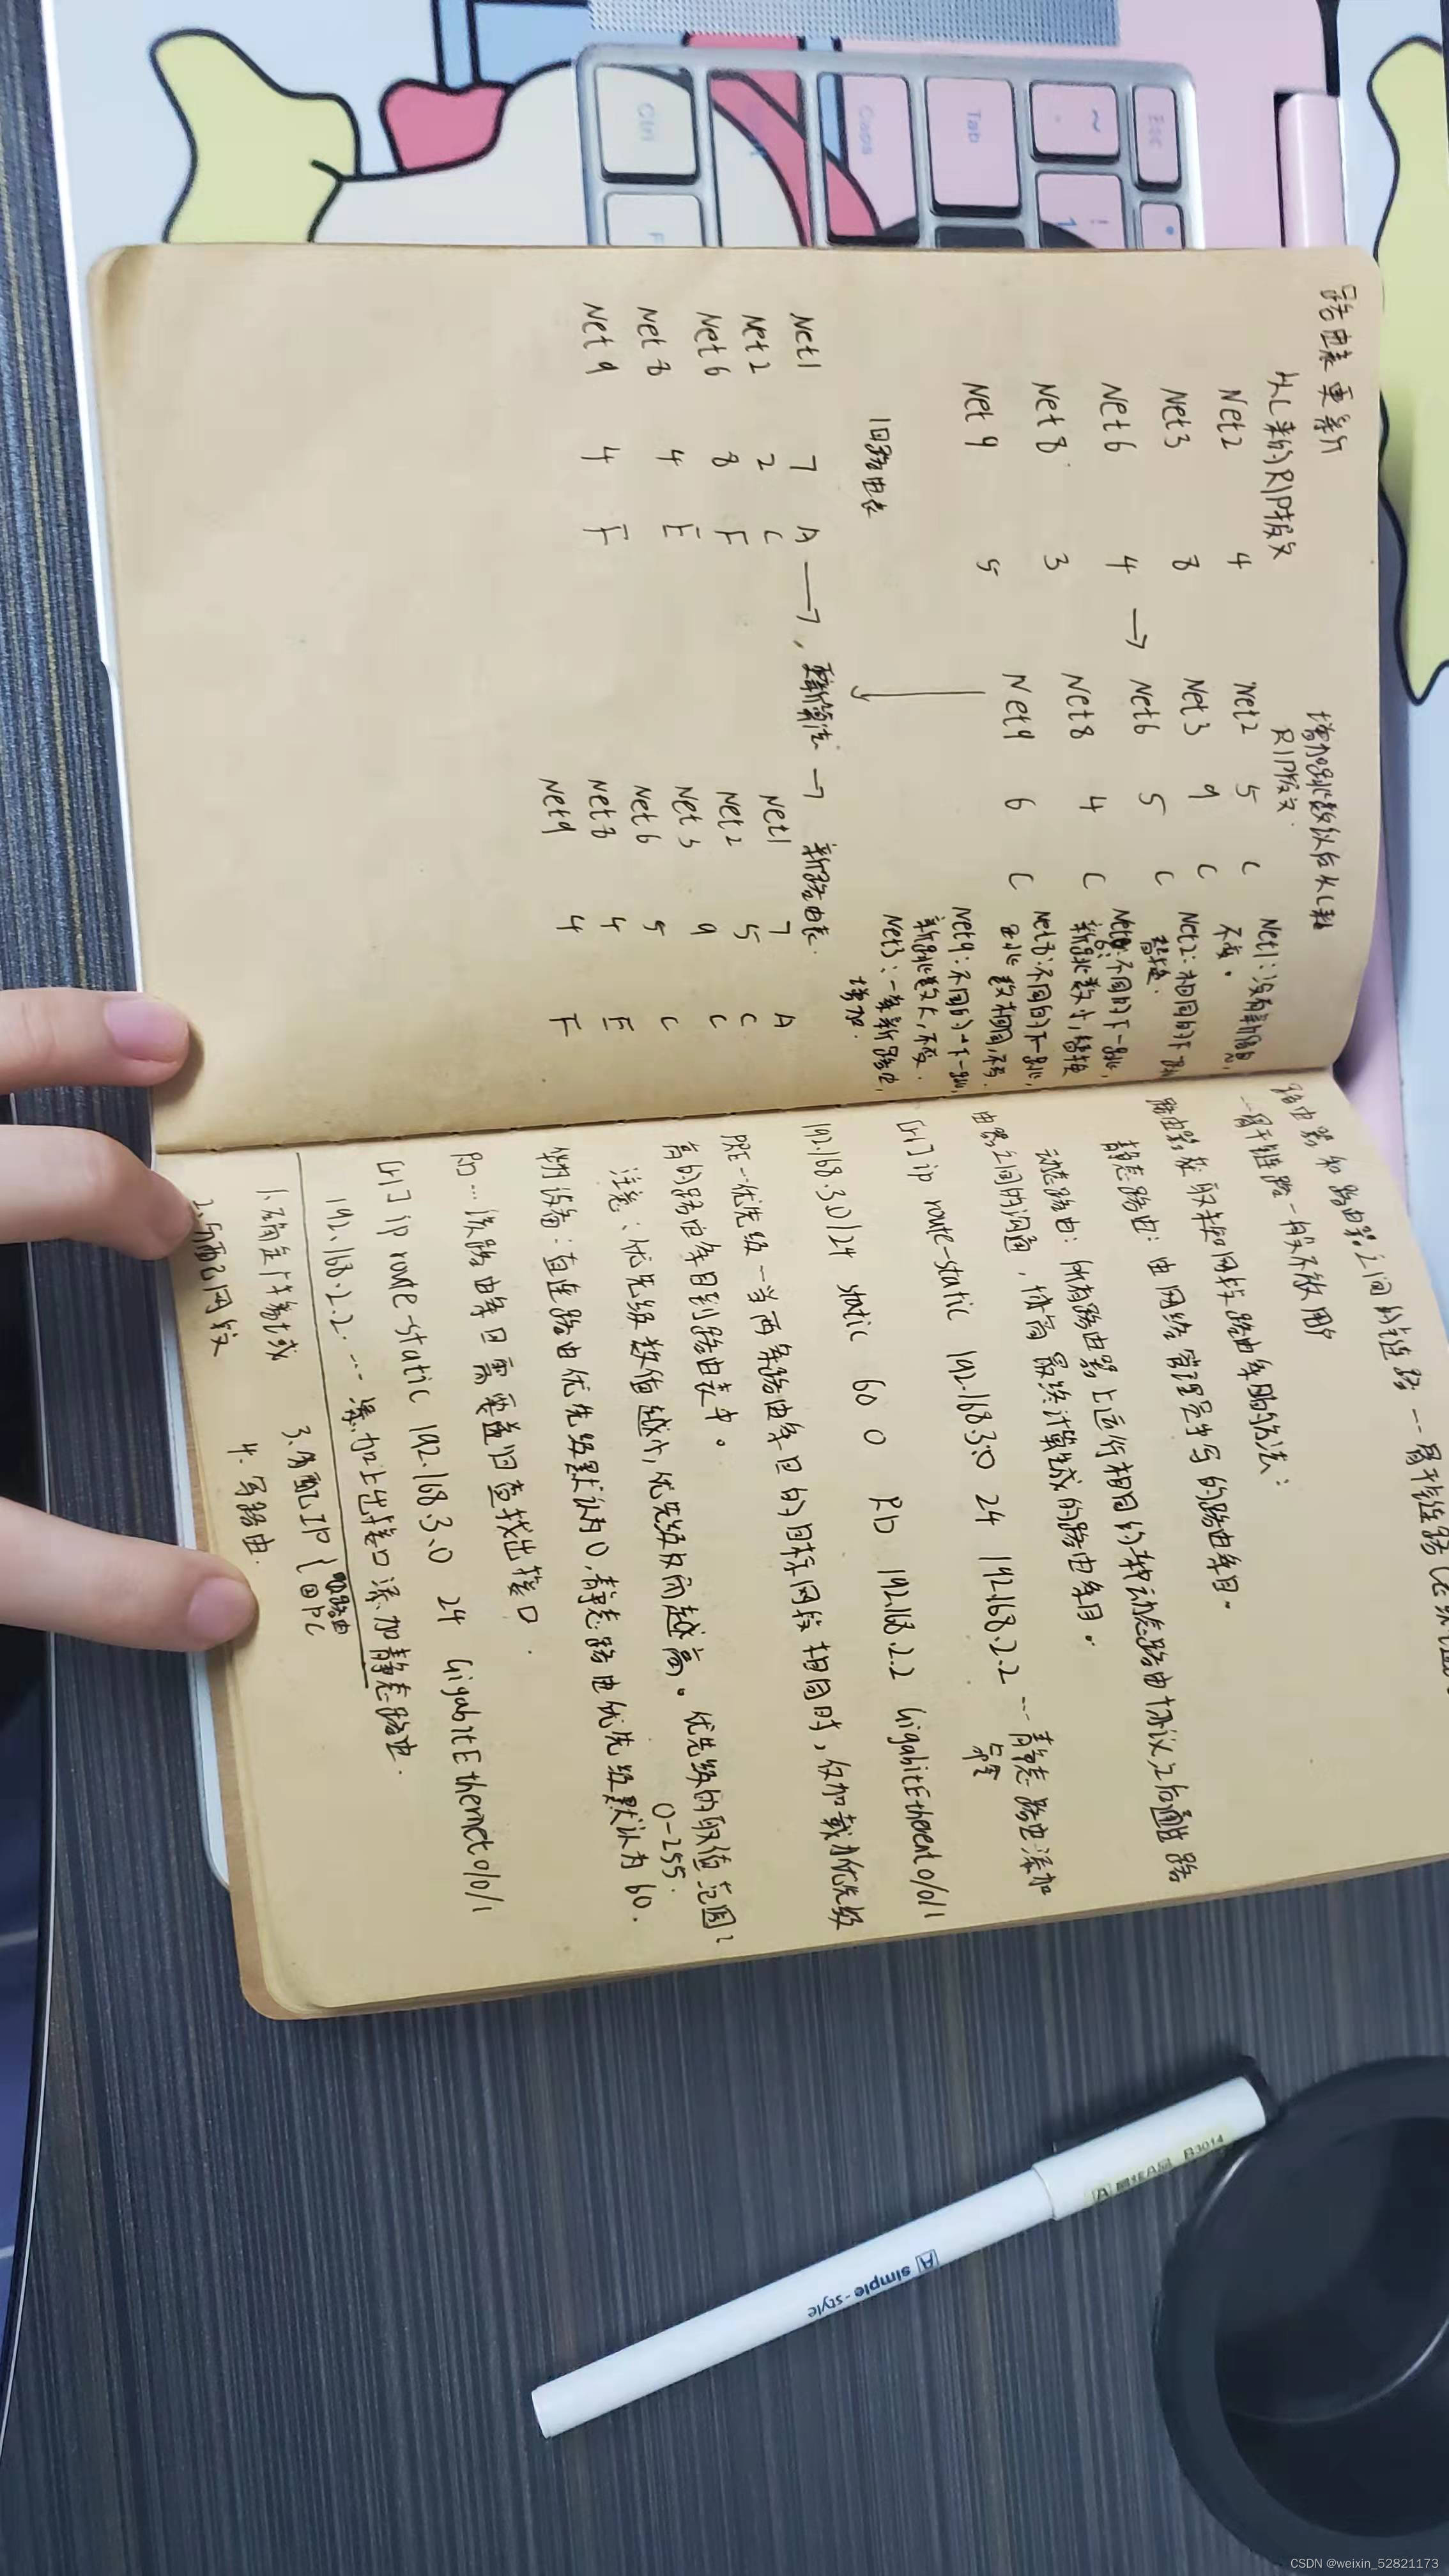 路由表更新
从C来的RIP报文
增加跳数以后从C来
RIP报文.
Net2 4
Net3 8
Net6 4 →
Net8 3
Net9 5
Net2 5 C
Net3 9 C
Net6 5 C
Net8 4 C
Net9 6 C
Net1:没有新信息,
不变。
Net2:相同的下一跳
替换.
Net6:不同的下一跳,
新跳数小,替换
Net8:不同的下一跳,
跳数相同,不变.
Net9:不同的下一跳,
新跳数大,不变.
Net3:一条新路由,
增加.
旧路由表
Net1 7 A → 更新算法 → 新路由表.
Net2 2 C
Net6 8 F
Net8 4 E
Net9 4 F
Net1 7 A
Net2 5 C
Net3 9 C
Net6 5 C
Net8 4 E
Net9 4 F
路由器和路由器之间的链路---骨干链路
---骨干链路一般不放用户
路由器获取未知网段路由条目的方法:
静态路由:由网络管理员手写的路由条目。
动态路由:所有路由器上运行相同的动态路由协议,之后通过路
由器之间的沟通,协商最终计算生成的路由条目。
[r1] ip route-static 192.168.3.0 24 192.168.2.2 ---静态路由添加
192.168.3.0/24 static 60 0 RD 192.168.2.2 GigabitEthernet0/0/1
PRE---优先级—当两条路由条目的目标网段相同时,仅加载优先级
高的路由条目到路由表中。
注意:优先级数值越小,优先级反而越高。优先级的取值范围:
0-255.
设备:直连路由优先级默认为0,静态路由优先级默认为60.
RD...该路由条目需要递归查找出接口.
[r1] ip route-static 192.168.3.0 24 GigabitEthernet0/0/1
192.168.2.2 ...添加上出接口添加静态路由.
1.确定广播域 3.分配IP { 路由
PC
2.分配网段 4.写路由.
Esc
~
Tab
Caps
Ctrl
A simple-style
R3014
CSDN @weixin_52821173